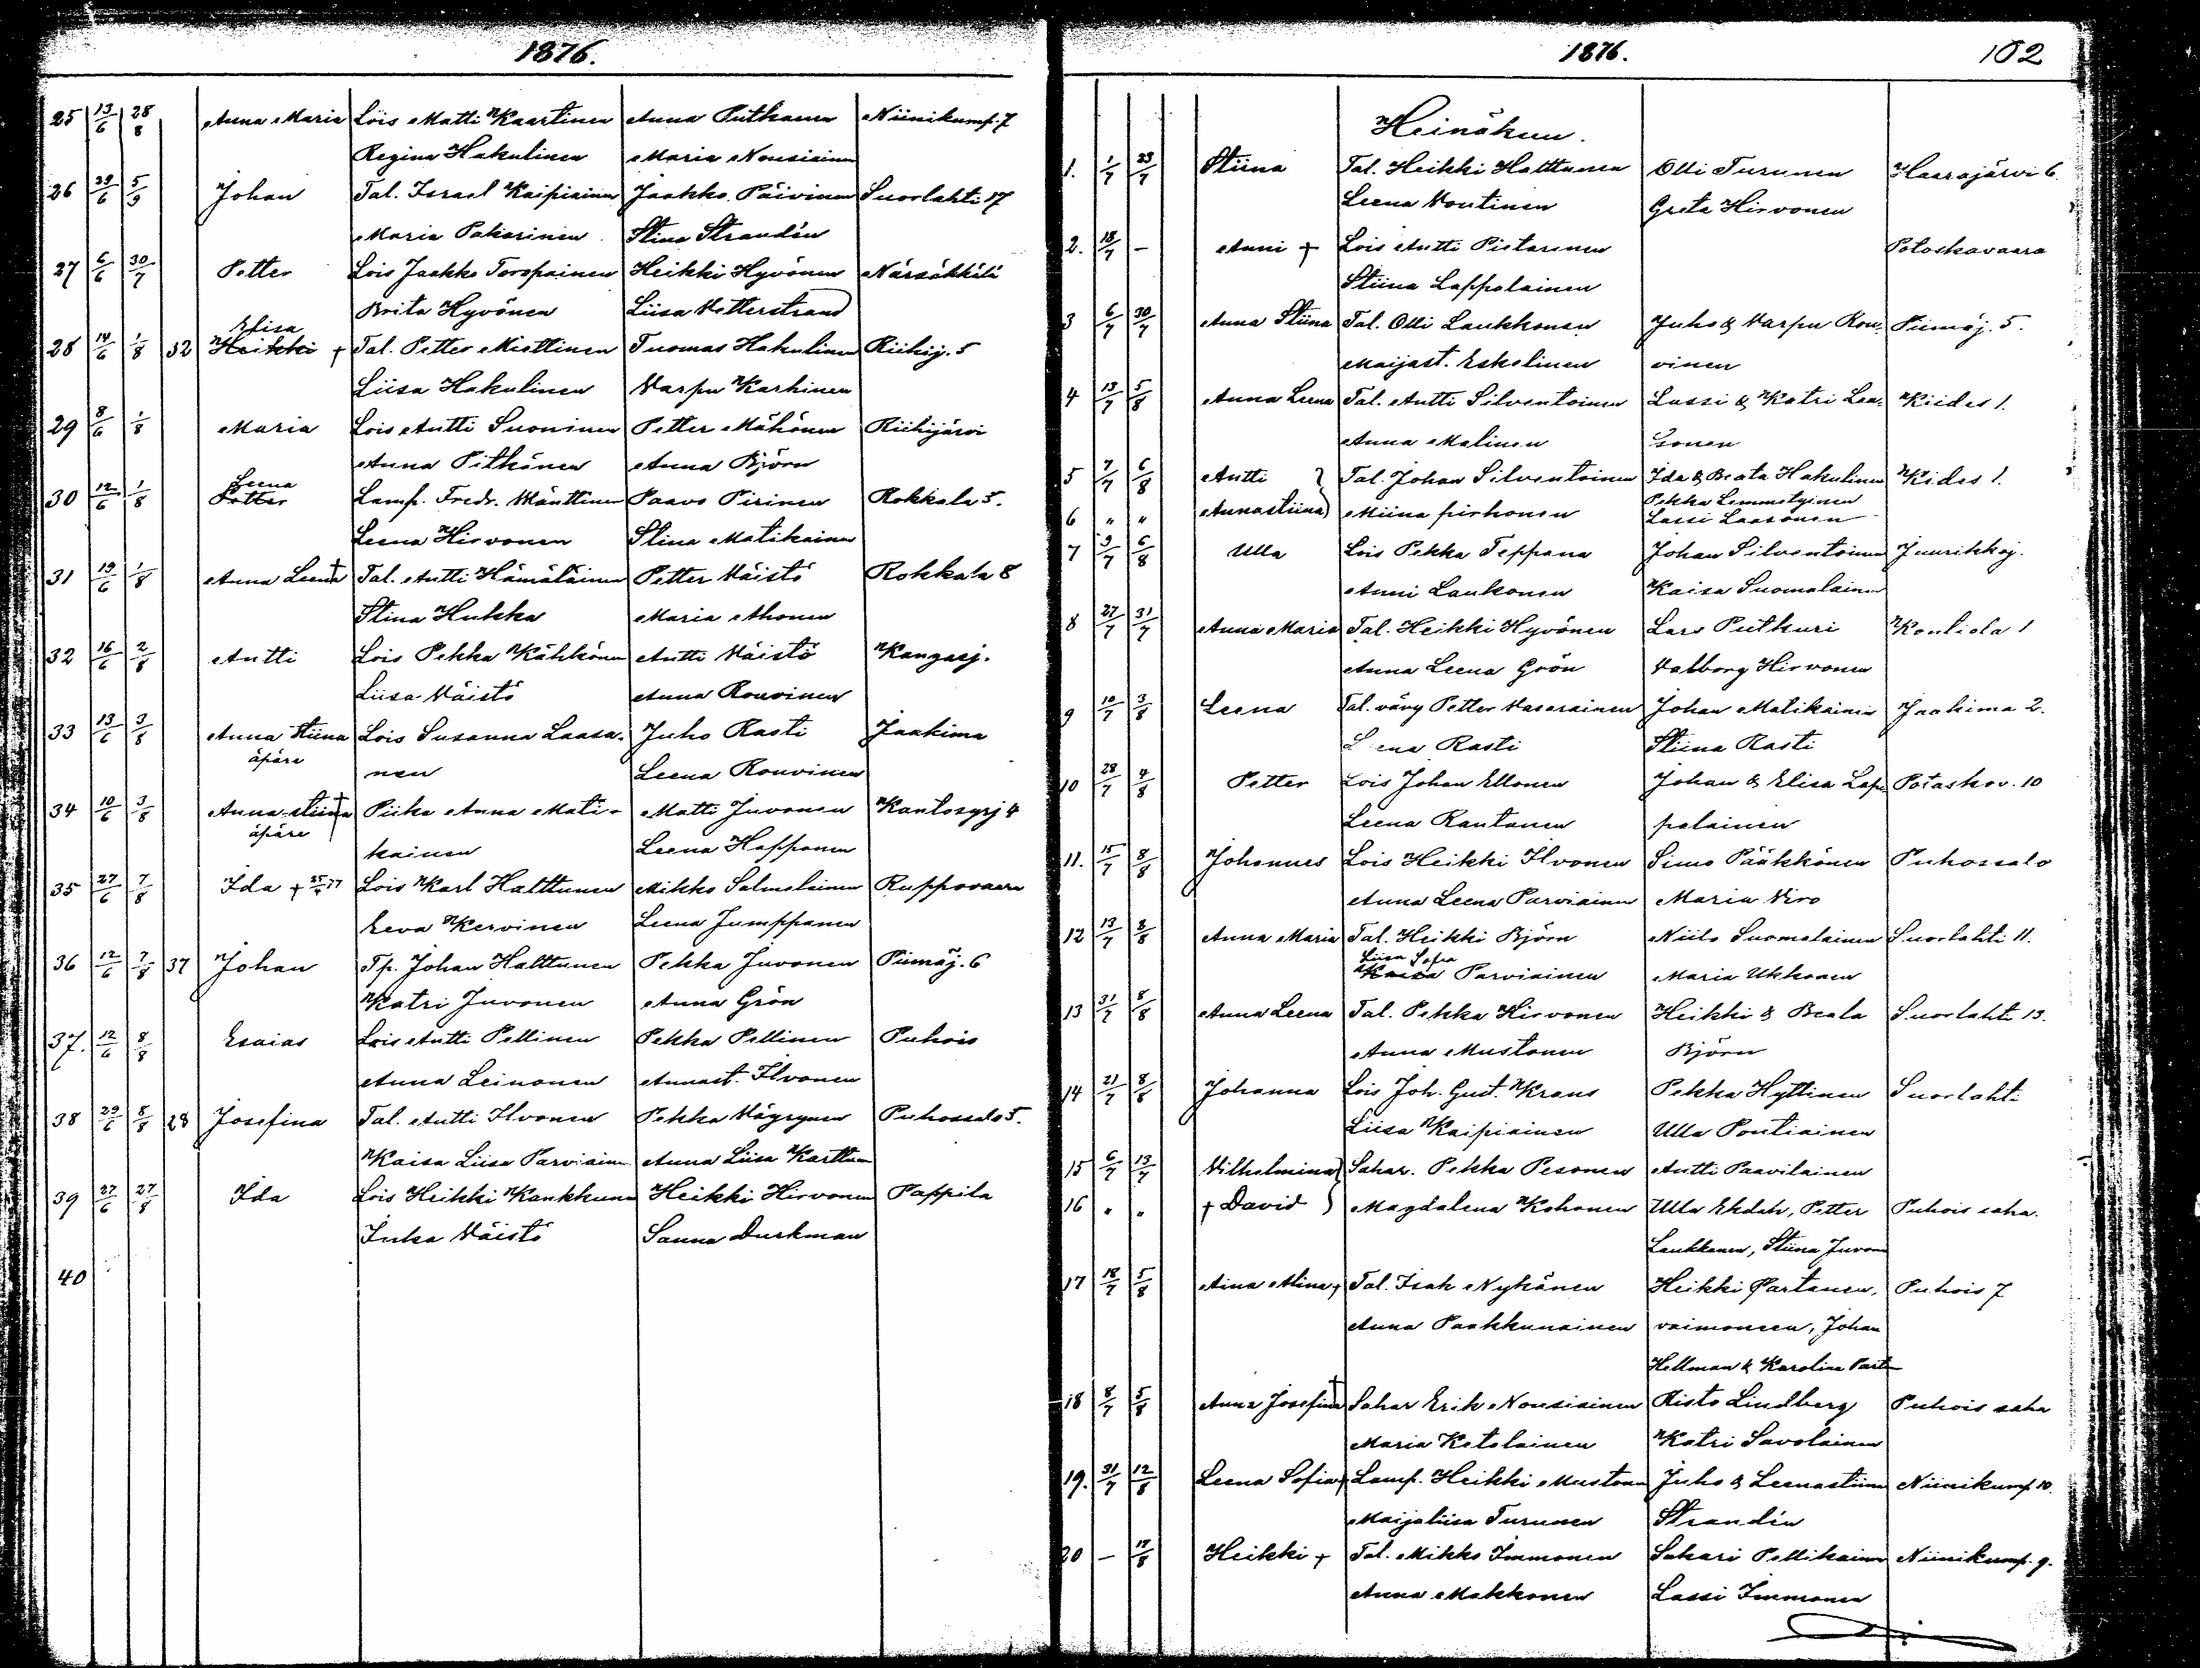 1876.
25 13/6 28/8 Anna Maria Lois Matti Kaartinen Anna Putkonen Niinikump. 7
Regina Hakulinen Maria Nousiainen
26 29/6 5/9 Johan Tal. Israel Kaipiainen Jaakko Päivinen Suorlahti 17
Maria Pakarinen Stina Strandén
27 6/6 30/7 Petter Lois Jaakko Toropainen Heikki Hyvönen Närsäkkälä
Brita Hyvönen Liisa Vetterstrand
Elisa
28 14/6 1/8 32 Heikki + Tal. Petter Miettinen Tuomas Hakulinen Riihij. 5
Liisa Hakulinen Varpu Karhinen
29 8/6 1/8 Maria Lois Antti Suoninen Petter Mähönen Riihijärvi
Anna Pitkänen Anna Björn
Leena
30 12/6 1/8 Petter Lamp. Fredr. Mänttinen Paavo Pirinen Rokkala 5.
Leena Hirvonen Stina Matikainen
31 19/6 1/8 Anna Leena + Tal. Antti Hämäläinen Petter Väistö Rokkala 8
Stina Hukka Maria Ahonen
32 16/6 2/8 Antti Lois Pekka Kähkönen Antti Väistö Kangasj.
Liisa Väistö Anna Rouvinen
33 13/6 3/8 Anna Stiina Lois Susanna Laasa- Juho Rasti Jaakima
äpäre nen Leena Rouvinen
34 10/6 3/8 Anna Stiina + Piika Anna Mati- Matti Juvonen Kantosyrj 4
äpäre kainen Leena Happonen
35 27/6 7/8 Ida + 25/4 77 Lois Karl Halttunen Mikko Salmelainen Ruppovaara
Eeva Kervinen Leena Jumppanen
36 12/6 7/8 37 Johan Tp. Johan Halttunen Pekka Juvonen Piimäj. 6
Katri Juvonen Anna Grön
37. 12/6 8/8 Esaias Lois Antti Pellinen Pekka Pellinen Puhois
Anna Leinonen Annast. Ilvonen
38 29/6 8/8 28 Josefina Tal. Antti Ilvonen Pekka Väyrynen Puhossalo 5.
Kaisa Liisa Parviainen Anna Liisa Karttunen
39 27/6 27/8 Ida Lois Heikki Kankkunen Heikki Hirvonen Pappila
Inka Väistö Sanna Durkman
40
1876. 102
Heinäkuu.
1. 1/7 23/7 Stiina Tal. Heikki Halttunen Olli Turunen Haarajärvi 6.
Leena Voutinen Greta Hirvonen
2. 18/7 — Anni + Lois Antti Pietarinen Potoskavaara
Stiina Lappalainen
3 6/7 30/7 Anna Stiina Tal. Olli Laukkonen Juho & Varpu Rou- Piimäj. 5.
Maijast. Eskelinen vinen
4 13/7 5/8 Anna Leena Tal. Antti Silventoinen Lassi & Katri Laa- Kiides 1.
Anna Malinen sonen
5 7/7 6/8 Antti Tal. Johan Silventoinen Ida & Beata Hakulinen Kides 1.
Pekka Lemmetyinen
6 " " Annastiina Miina pirhonen Lassi Laasonen
7 9/7 6/8 Ulla Lois Pekka Teppana Johan Silventoinen Juurikkaj.
Anni Laukonen Kaisa Suomalainen
8 27/7 31/7 Anna Maria Tal. Heikki Hyvönen Lars Putkuri Kontiola 1
Anna Leena Grön Valborg Hirvonen
9 10/7 3/8 Leena Tal. vävy Petter Vaserainen Johan Matikainen Jaakima 2.
Leena Rasti Stiina Rasti
10 28/7 4/8 Petter Lois Johan Ellonen Johan & Elisa Lap- Potaskav. 10
Leena Rautanen palainen
11. 15/7 8/8 Johannes Lois Heikki Ilvonen Simo Pääkkönen Puhossalo
Anna Leena Parviainen Maria Viro
12 13/7 8/8 Anna Maria Tal. Heikki Björn Niilo Suomalainen Suorlahti 11.
Liisa Sofia
Kaisa Parviainen Maria Ukkonen
13 31/7 8/8 Anna Leena Tal. Pekka Hirvonen Heikki & Beata Suorlahti 13.
Anna Mustonen Björn
14 21/7 8/8 Johanna Lois Joh. Gust. Kraus Pekka Hyttinen Suorlahti
Liisa Kaipiainen Ulla Pontiainen
15 6/7 13/7 Vilhelmina Sahar. Pekka Pesonen Antti Paavilainen
16 " " + David Magdalena Kohonen Ulla Ekdah, Petter Puhois saha.
Laukkanen, Stiina Juvonen
17 18/7 5/8 Aina Alina + Tal. Isak Nykänen Heikki Partanen, Puhois 7
Anna Paakkunainen vaimoneen, Johan
Hellman & Karolina Part
18 8/7 5/8 Anna Josefina + Sahar Erik Nousiainen Risto Lindberg Puhois saha
Maria Ketolainen Katri Savolainen
19. 31/7 12/8 Leena Sofia + Lamp. Heikki Mustonen Juho & Leenastiina Niinikump. 10.
Maijaliisa Turunen Strandén
20 — 19/8 Heikki + Tal. Mikko Immonen Sakari Pellikainen Niinikump. 9.
Anna Makkonen Lassi Immonen